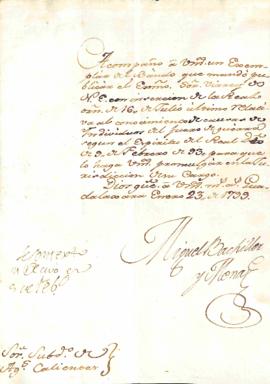 Acompaño à Vmd. un Exem-
plar de Bando que mandó pu-
blicar el Exmo. Sor. Virrey de
N. E. con insercion de la Real
orn. de 16 de Julio ultimo relati-
va al conocimiento de causas de
Individuos del fuero de guerra
segun el Espiritu del Real Dto.
de 9 de Febrero de 93, para que
lo haga Vmd. promulgar en la Ju-
risdiccion de su Cargo.
Dios gue. à Vmd. ms. as. Gua-
dalaxara Enero 23, de 1799.
Miguel Bachiller
y Mena
Sor. Subdo. de
Ags. Calientes